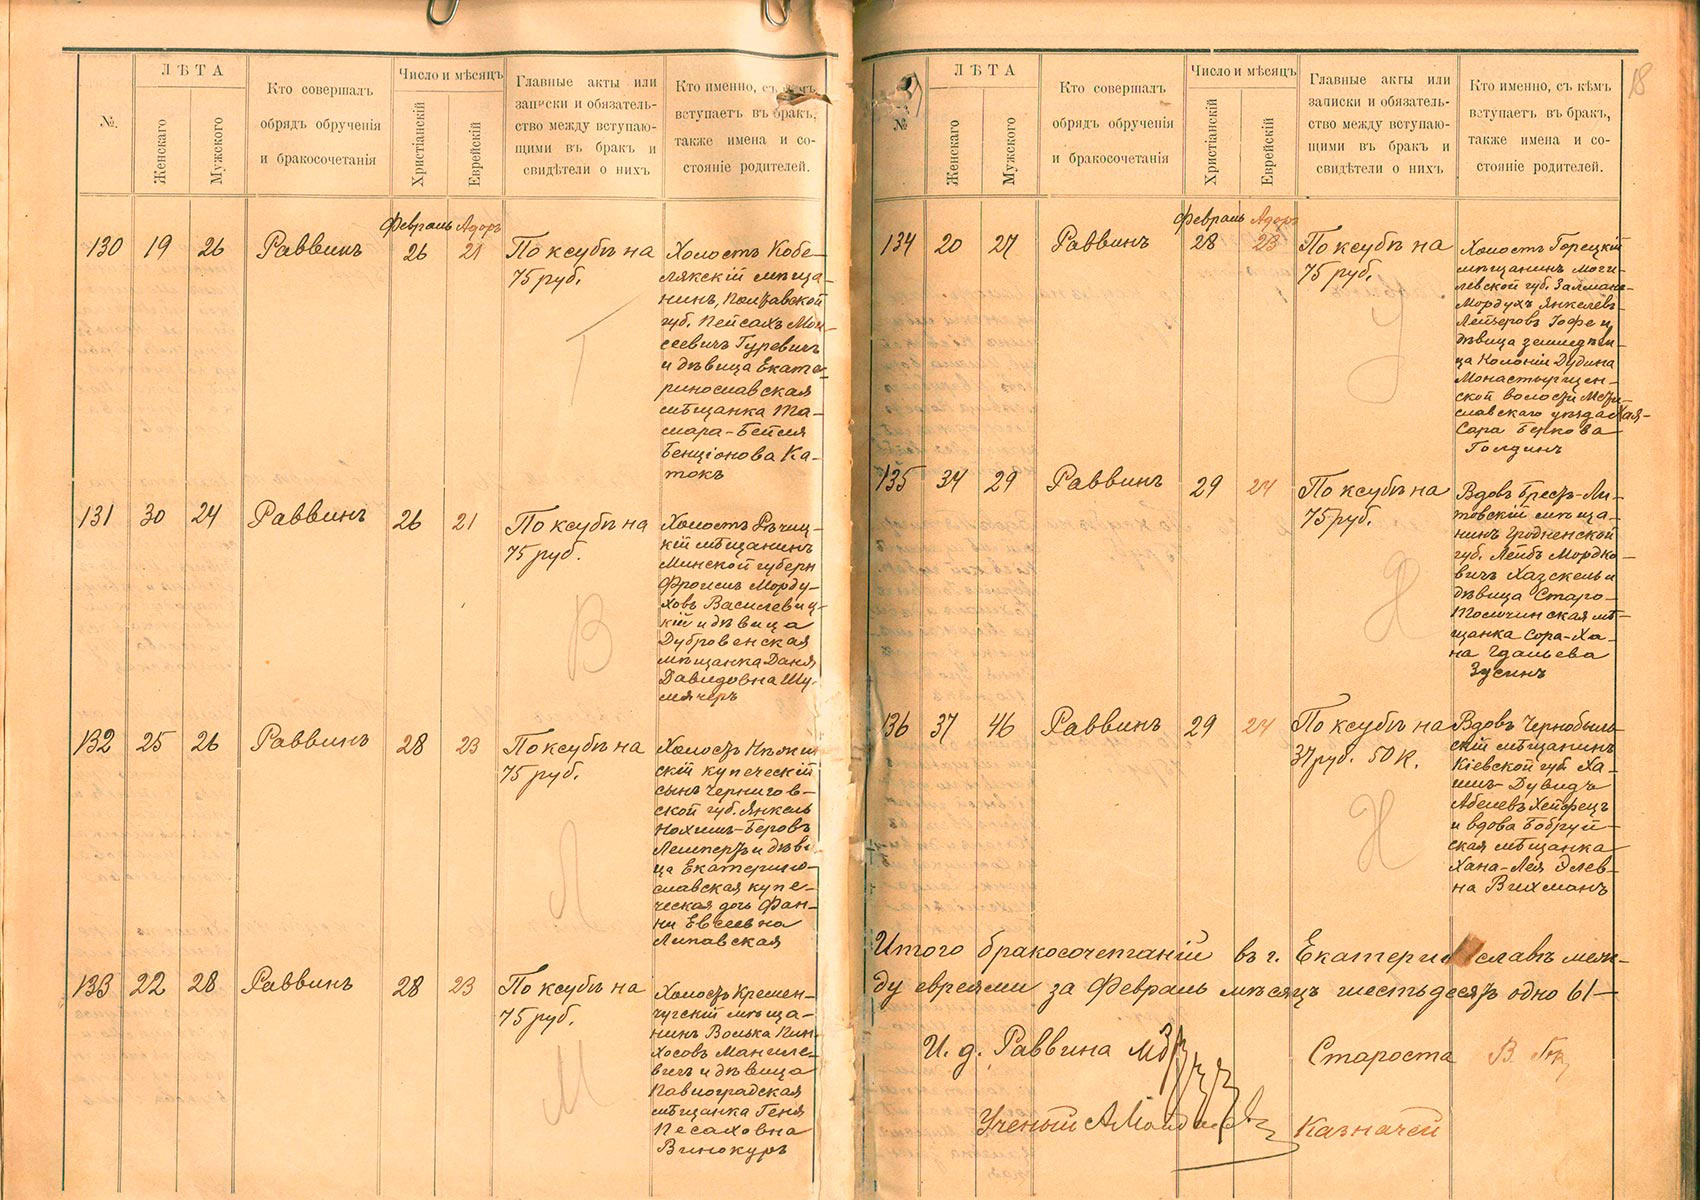 №.
ЛѢТА
Женскаго
Мужского
Кто совершалъ
обрядъ обрученія
и бракосочетанія
Число и мѣсяцъ
Христіанскій
Еврейскій
Главные акты или
записки и обязатель-
ство между вступаю-
щими въ бракъ и
свидѣтели о нихъ
Кто именно, съ кѣмъ
вступаетъ въ бракъ,
также имена и со-
стояніе родителей.
Февраль Адоръ
130 19 26 Раввинъ 26 21
По ксубѣ на
75 руб.
Холостъ Кобе-
лякскій мѣща-
нинъ, Полтавской
губ. Пейсахъ Мои-
сеевичъ Гуревичъ
и дѣвица Екате-
ринославская
мѣщанка Та-
мара-Бейля
Бенціонова Ка-
токъ
Г
131 30 24 Раввинъ 26 21
По ксубѣ на
75 руб.
Холостъ Рѣчиц-
кій мѣщанинъ
Минской губерн
Фроимъ Морду-
ховъ Василевиц-
кій и дѣвица
Дубровенская
мѣщанка Даня
Давидовна Шу-
мячеръ
В
132 25 26 Раввинъ 28 23
По ксубѣ на
75 руб.
Холостъ Нѣжин
скій купеческій
сынъ Чернигов-
ской губ. Янкель
Нохимъ-Беровъ
Лемпертъ и дѣви
ца Екатерино-
славская купе-
ческая дочь Фан-
ни Евсеевна
Липавская
Л
133 22 28 Раввинъ 28 23
По ксубѣ на
75 руб.
Холостъ Кремен-
чугскій мѣща-
нинъ Волька Пин-
хосовъ Мангиле-
вичъ и дѣвица
Павлоградская
мѣщанка Геня
Песаховна
Винокуръ
М
18
№
ЛѢТА
Женскаго
Мужского
Кто совершалъ
обрядъ обрученія
и бракосочетанія
Число и мѣсяцъ
Христіанскій
Еврейскій
Главные акты или
записки и обязатель-
ство между вступаю-
щими въ бракъ и
свидѣтели о нихъ
Кто именно, съ кѣмъ
вступаетъ въ бракъ,
также имена и со-
стояніе родителей.
Февраль Адоръ
134 20 27 Раввинъ 28 23
По ксубѣ на
75 руб.
Холостъ Горецкій
мѣщанинъ Моги-
левской губ. Залманъ-
Мордухъ Янкелевъ-
Лейзеровъ Іофе и
дѣвица землидѣли-
ца Колоніи Дудина
Монастырщен-
ской волости Мсти-
славскаго уѣзда Хая-
Сора Беркова
Голдинъ
135 34 29 Раввинъ 29 24
По ксубѣ на
75 руб.
Вдовъ Брестъ-Ли-
товскій мѣща-
нинъ Гродненской
губ. Лейбъ Мордко-
вичъ Хазскель и
дѣвица Старо-
Толочинская мѣ-
щанка Сора-Ха-
на Гдальева
Зусинъ
136 37 46 Раввинъ 29 24
По ксубѣ на
37 руб. 50 к.
Вдовъ Чернобыль-
скій мѣщанинъ
Кіевской губ. Ха-
имъ-Дувидъ
Абелевъ Хейфецъ
и вдова Бобруй-
ская мѣщанка
Хана-Лея Элев-
на Вихманъ
Н
Итого бракосочетаній въ г. Екатеринославѣ меж-
ду евреями за Февраль мѣсяцъ шестьдесятъ одно 61—
И. д. Раввина
Староста В.
Ученый
Казначей